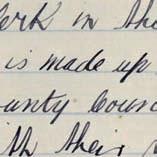 erk in the
is made up
unty Counc
ith their